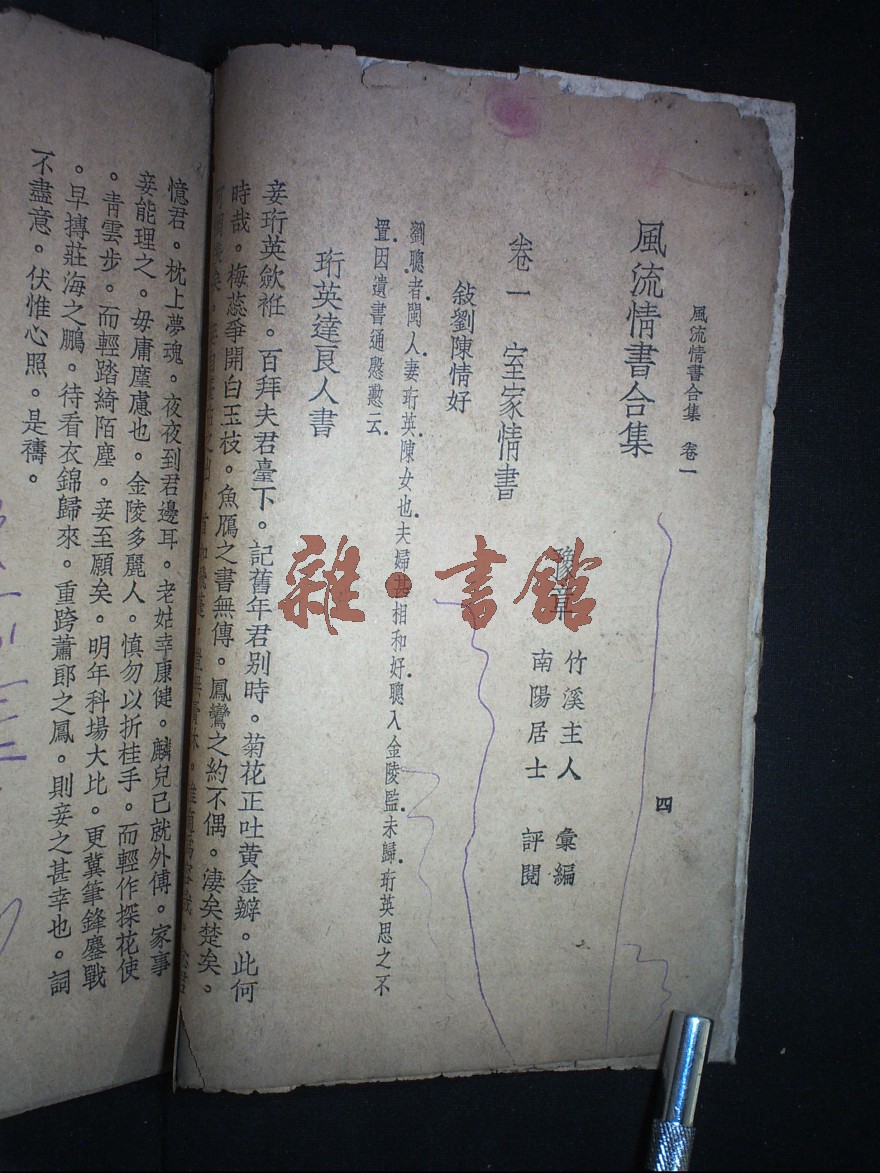 風流情書合集 卷一
四
風流情書合集
豫章 竹溪主人 彙編
南陽居士 評閱
卷一 室家情書
敍劉陳情好
劉聰者．閩人．妻珩英．陳女也．夫婦甚相和好．聰入金陵監．未歸．珩英思之不
置．因遺書通慇懃云．
珩英達良人書
妾珩英歛袵。百拜夫君臺下。記舊年君別時。菊花正吐黃金瓣。此何
時哉。梅蕊爭開白玉枝。魚鴈之書無傳。鳳鸞之約不偶。淒矣楚矣。
憶君。枕上夢魂。夜夜到君邊耳。老姑幸康健。麟兒已就外傅。家事
妾能理之。毋庸塵慮也。金陵多麗人。慎勿以折桂手。而輕作探花使
。靑雲步。而輕踏綺陌塵。妾至願矣。明年科場大比。更冀筆鋒鏖戰
。早摶莊海之鵬。待看衣錦歸來。重跨蕭郞之鳳。則妾之甚幸也。詞
不盡意。伏惟心照。是禱。
雜·書館